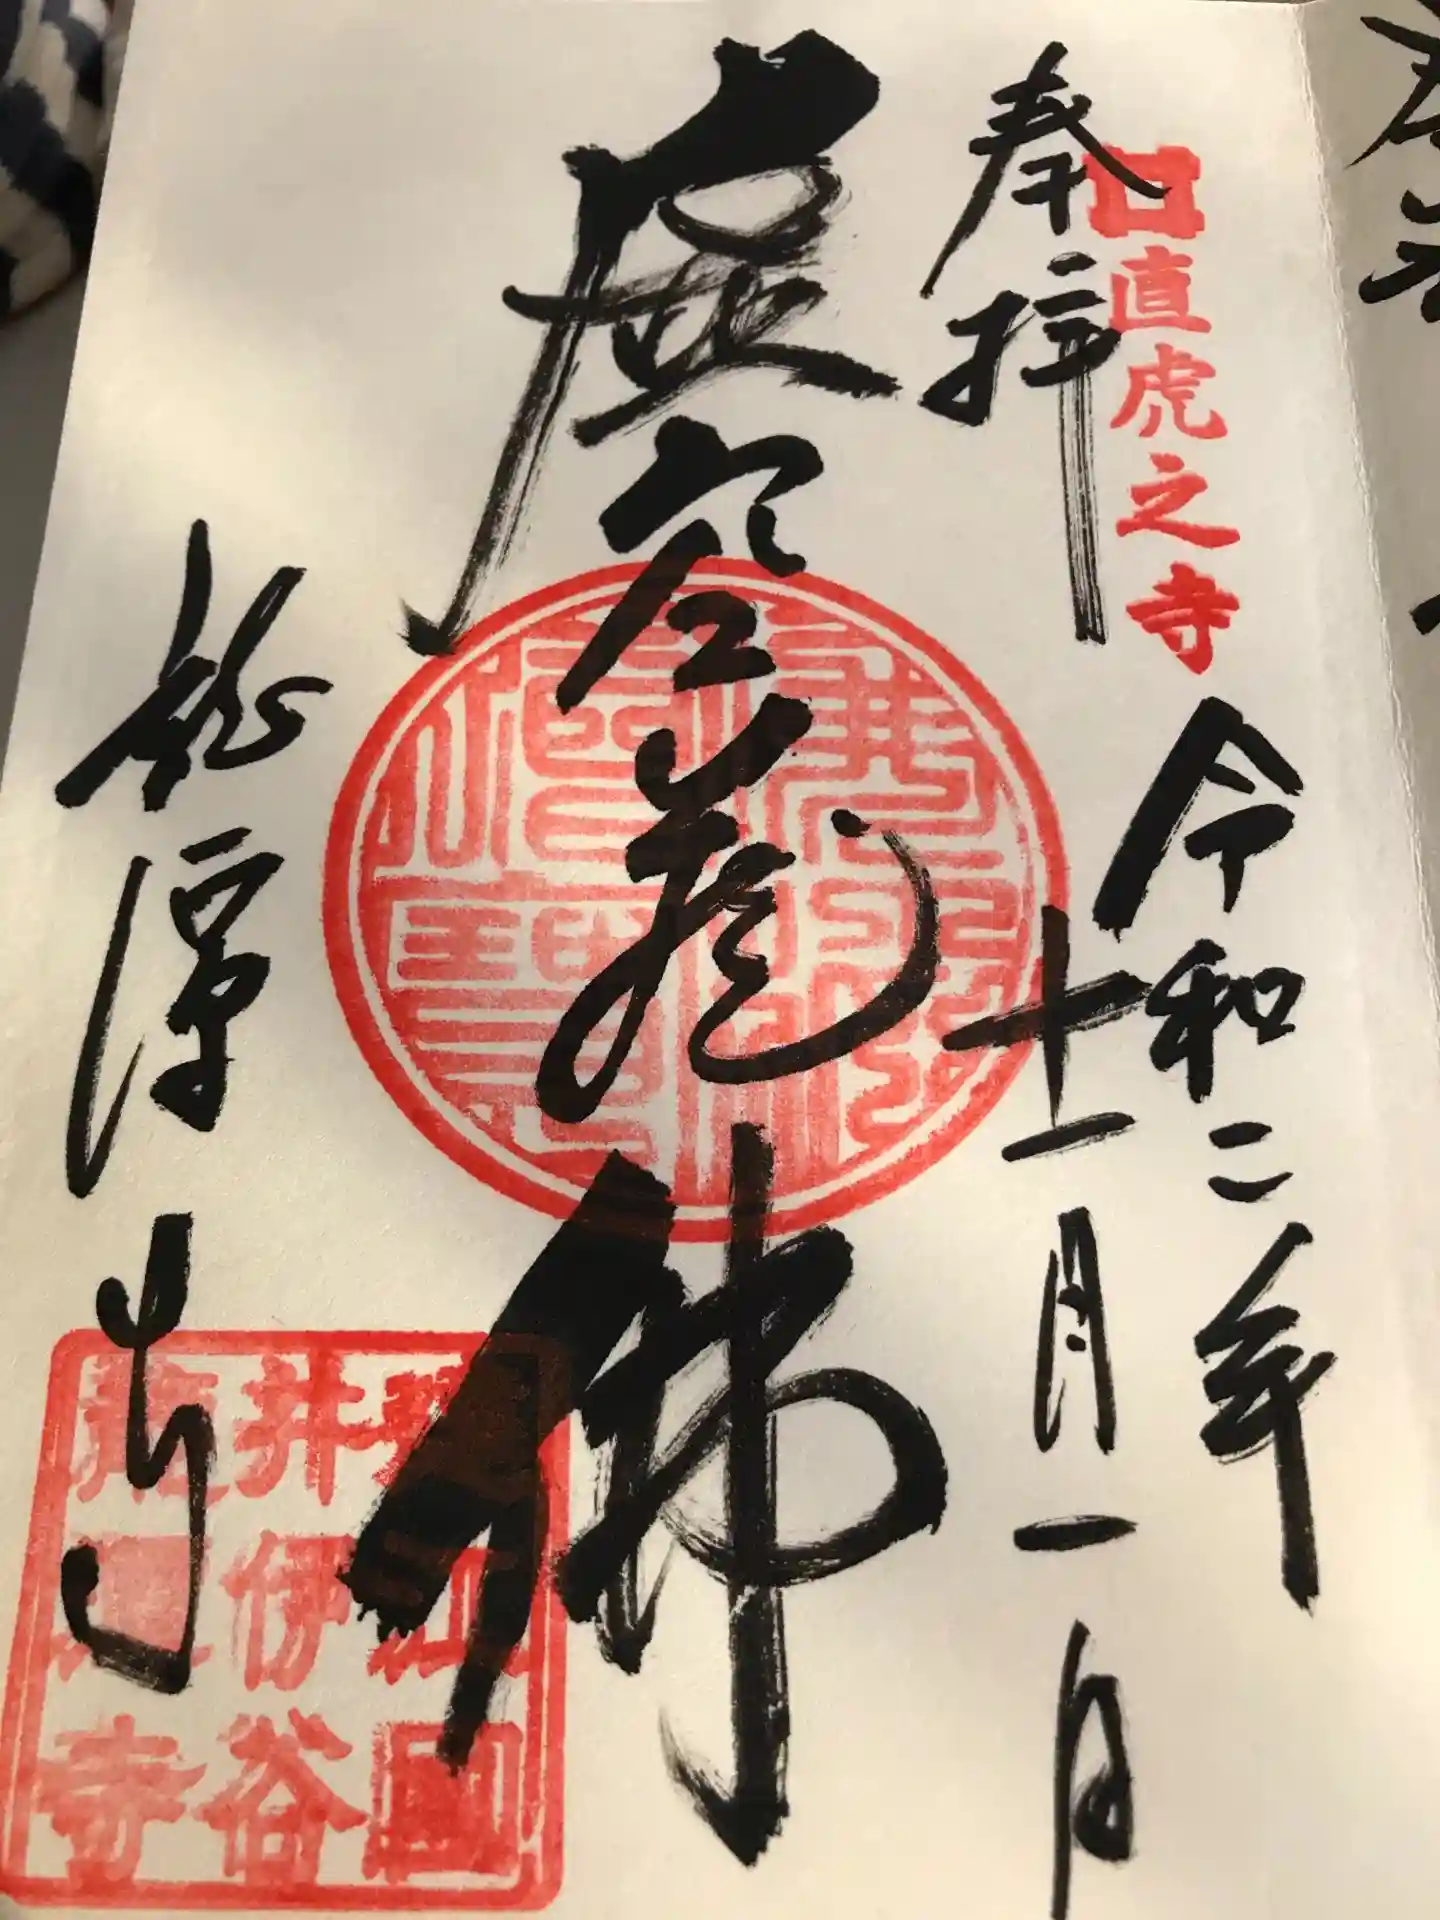 奉拝
直虎之寺
令和二年
十一月一日
虚空蔵佛
龍潭寺
遠江國
井伊谷
龍潭寺